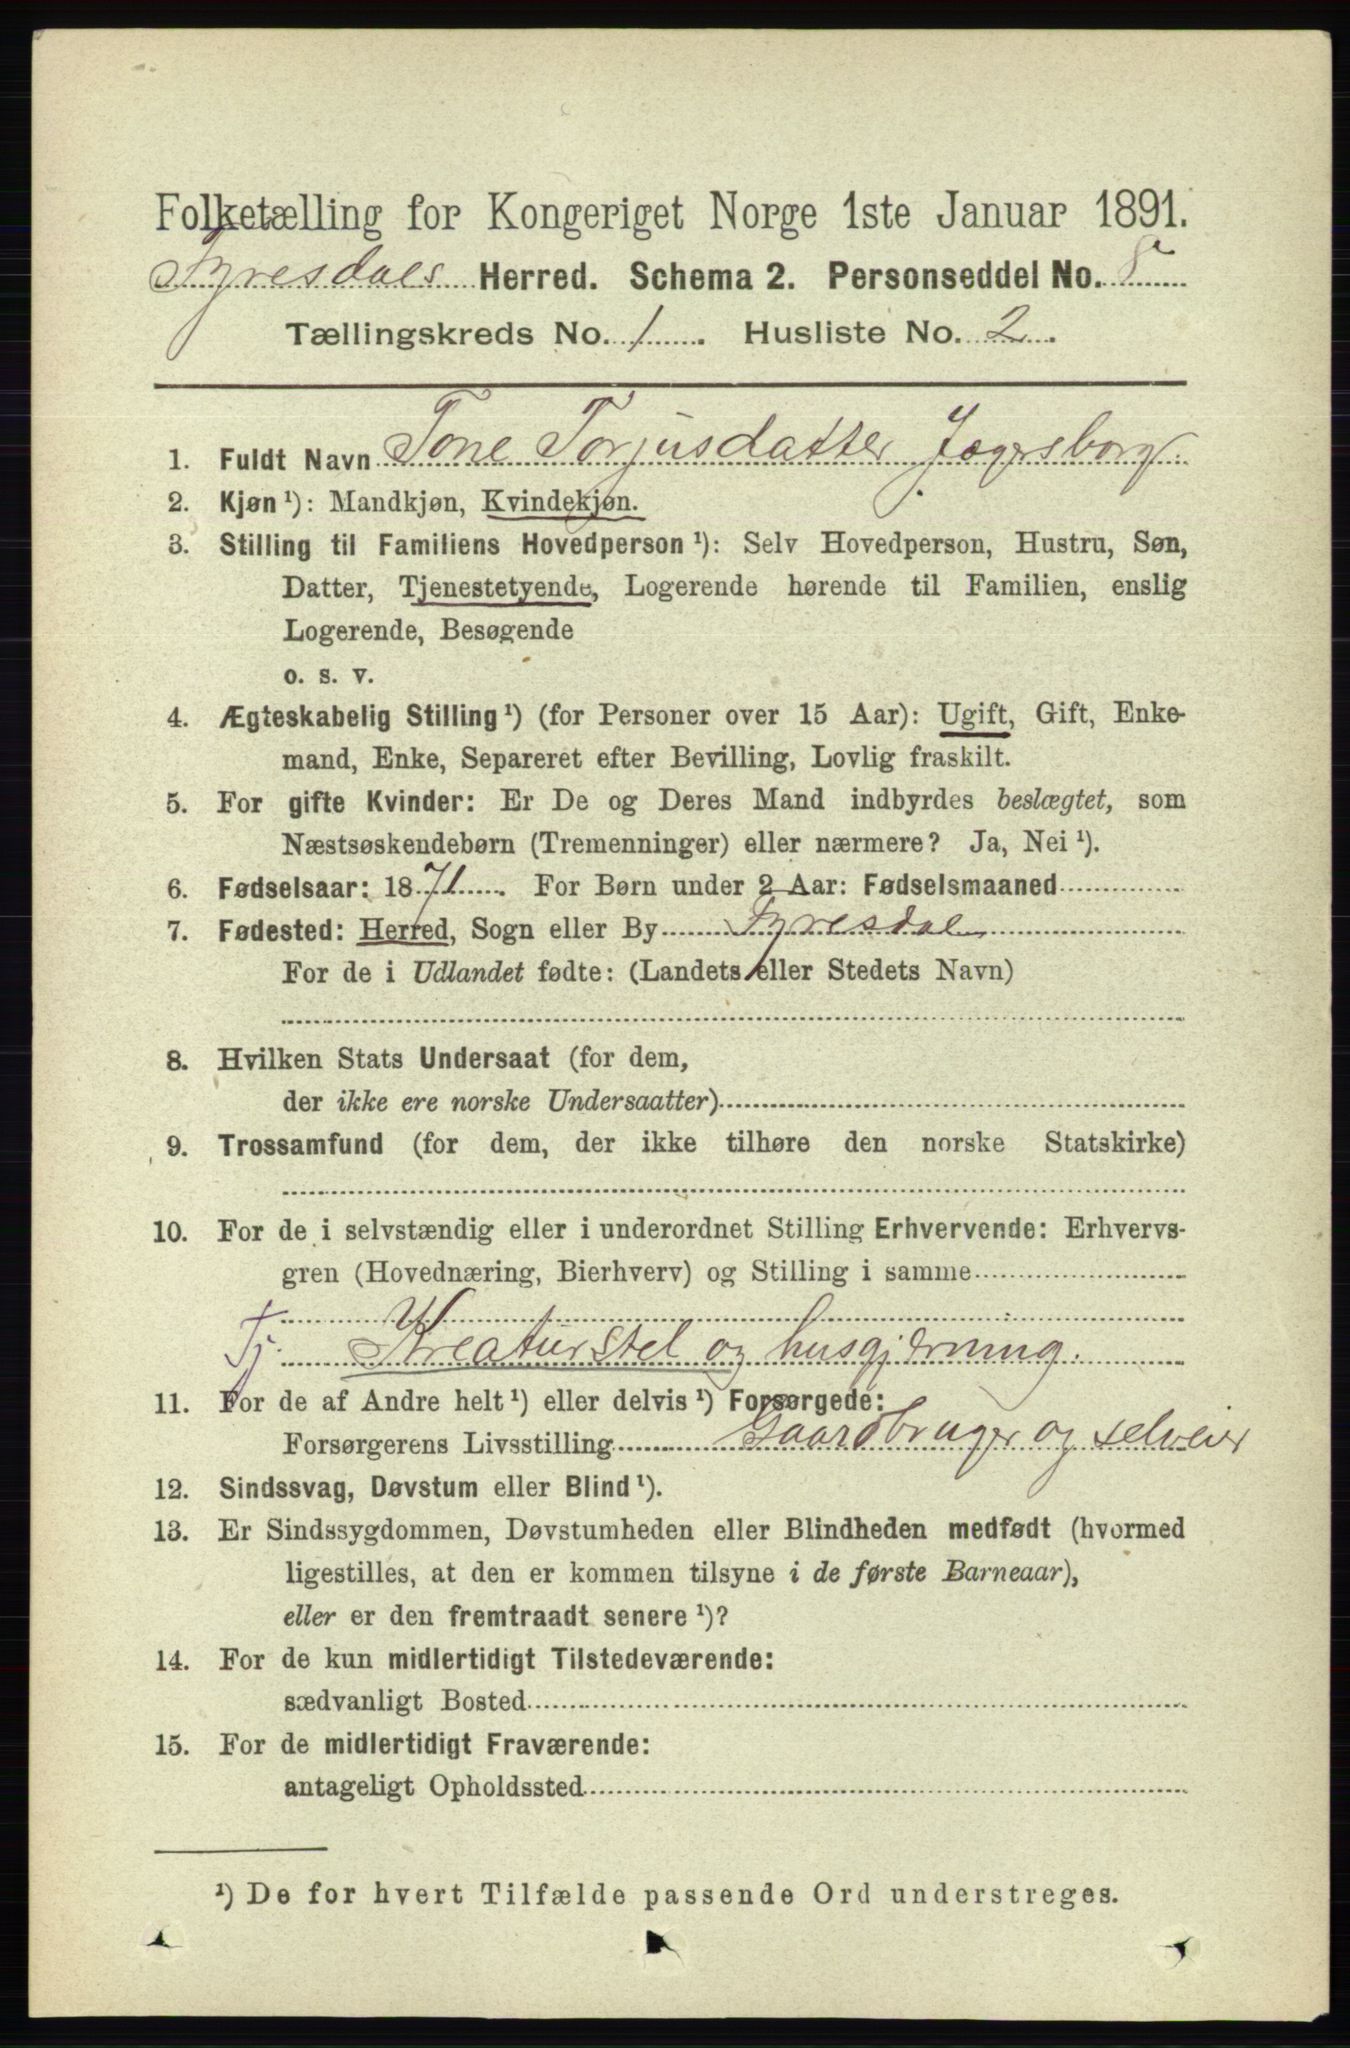 Folketælling for Kongeriget Norge 1ste Januar 1891.
Tyresdals Herred. Schema 2. Personseddel No. 8
Tællingskreds No. 1. Husliste No. 2.
1. Fuldt Navn Tone Torjusdatter Jægersborg.
2. Kjøn ¹): Mandkjøn, Kvindekjøn.
3. Stilling til Familiens Hovedperson ¹): Selv Hovedperson, Hustru, Søn,
Datter, Tjenestetyende, Logerende hørende til Familien, enslig
Logerende, Besøgende
o. s. v.
4. Ægteskabelig Stilling ¹) (for Personer over 15 Aar): Ugift, Gift, Enke-
mand, Enke, Separeret efter Bevilling, Lovlig fraskilt.
5. For gifte Kvinder: Er De og Deres Mand indbyrdes beslægtet, som
Næstsøskendebørn (Tremenninger) eller nærmere? Ja, Nei ¹).
6. Fødselsaar: 1871. For Børn under 2 Aar: Fødselsmaaned
7. Fødested: Herred, Sogn eller By Tyresdal
For de i Udlandet fødte: (Landets eller Stedets Navn)
8. Hvilken Stats Undersaat (for dem,
der ikke ere norske Undersaatter)
9. Trossamfund (for dem, der ikke tilhøre den norske Statskirke)
10. For de i selvstændig eller i underordnet Stilling Erhvervende: Erhvervs-
gren (Hovednæring, Bierhverv) og Stilling i samme
Tj. Kreaturstel og husgjerning.
11. For de af Andre helt ¹) eller delvis ¹) Forsørgede:
Forsørgerens Livsstilling Gaardbruger og selveier
12. Sindssvag, Døvstum eller Blind ¹).
13. Er Sindssygdommen, Døvstumheden eller Blindheden medfødt (hvormed
ligestilles, at den er kommen tilsyne i de første Barneaar),
eller er den fremtraadt senere ¹)?
14. For de kun midlertidigt Tilstedeværende:
sædvanligt Bosted
15. For de midlertidigt Fraværende:
antageligt Opholdssted
¹) De for hvert Tilfælde passende Ord understreges.